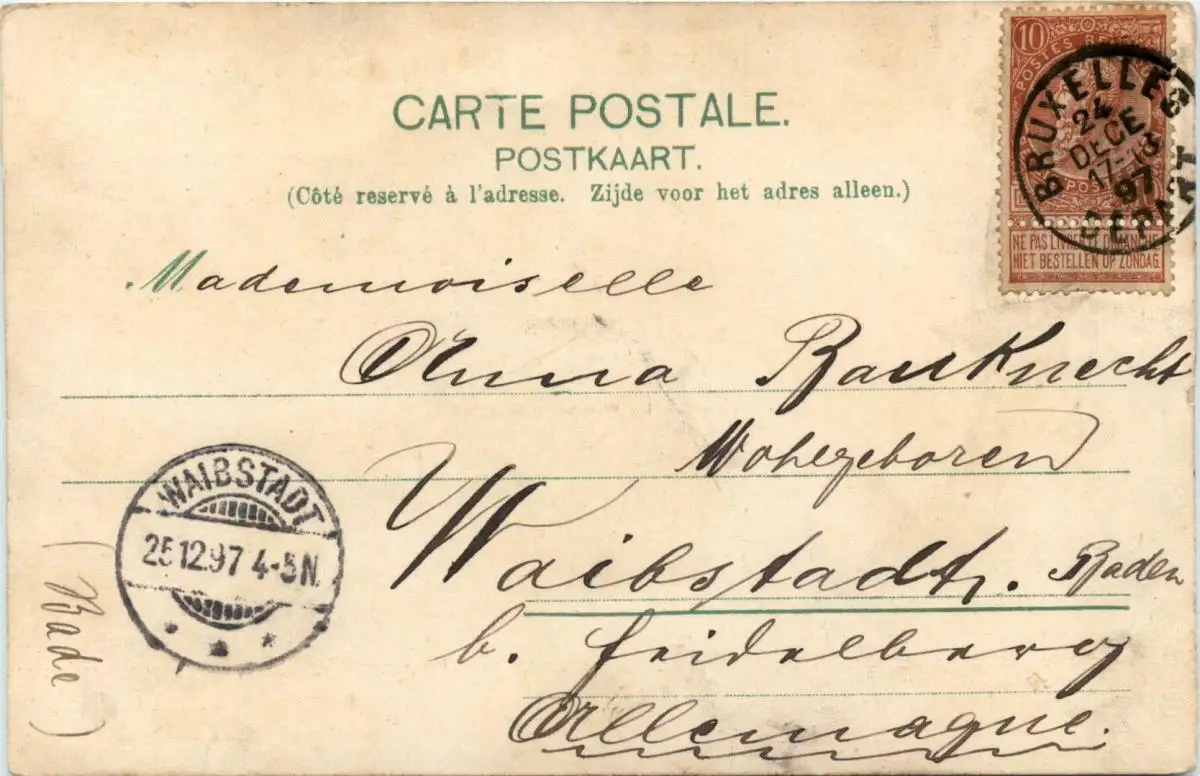 CARTE POSTALE.
POSTKAART.
(Côté reservé à l'adresse. Zijde voor het adres alleen.)
10
POSTES
BRUXELLES
24
DECE
17-18
97
DEPART
NE PAS LIVRER LE DIMANCHE
NIET BESTELLEN OP ZONDAG
Mademoiselle
Anna Bauknecht
Wohlgeboren
Waibstadt. Baden
b. Heidelberg
Allemagne.
WAIBSTADT
25.12.97 4-5N.
(Bade)